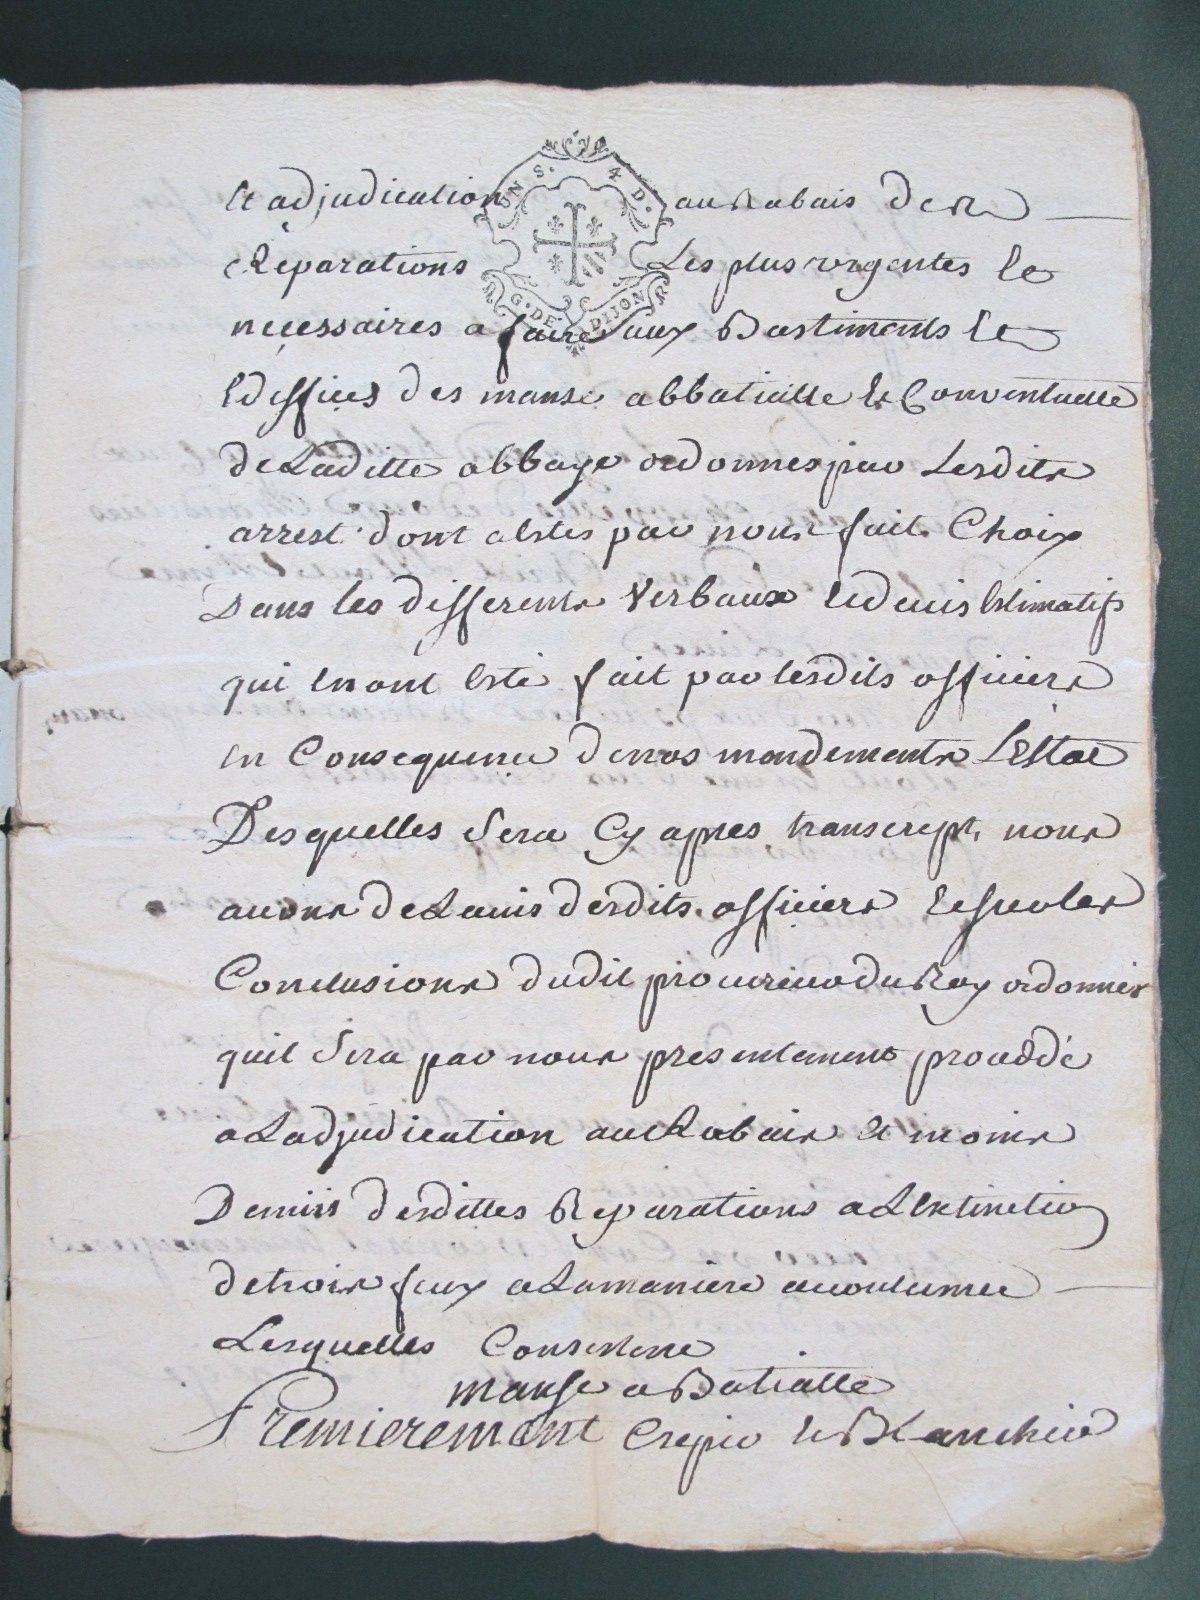 UN S. 4 D.
Et adjudication au Rabais des
Reparations Les plus urgentes Et
G. DE DIJON
necessaires a faire aux Bastiments Et
Ediffices des manse abbatialle Et Conventuelle
de Laditte abbaye ordonnes par Lesdits
arrest dont a estes par nous fait Choix
Dans les differents Verbaux Et devis Estimatifs
qui En ont Esté fait par lesdits officiers
En Consequence de nos mandements L'Estat
Desquelles Sera Cy apres transcript, nous
avons de Lavis desdits officiers Et sur les
Conclusions dudit procureur du Roy ordonnés
quil Sera par nous presentement procedé
a Ladjudication au Rabais Et moins
Demis desdittes Reparations a Lextinction
de trois feux a La maniere accoutumee
Lesquelles Consistent
manse aBatialle
Premierement Crepir Et Blanchir